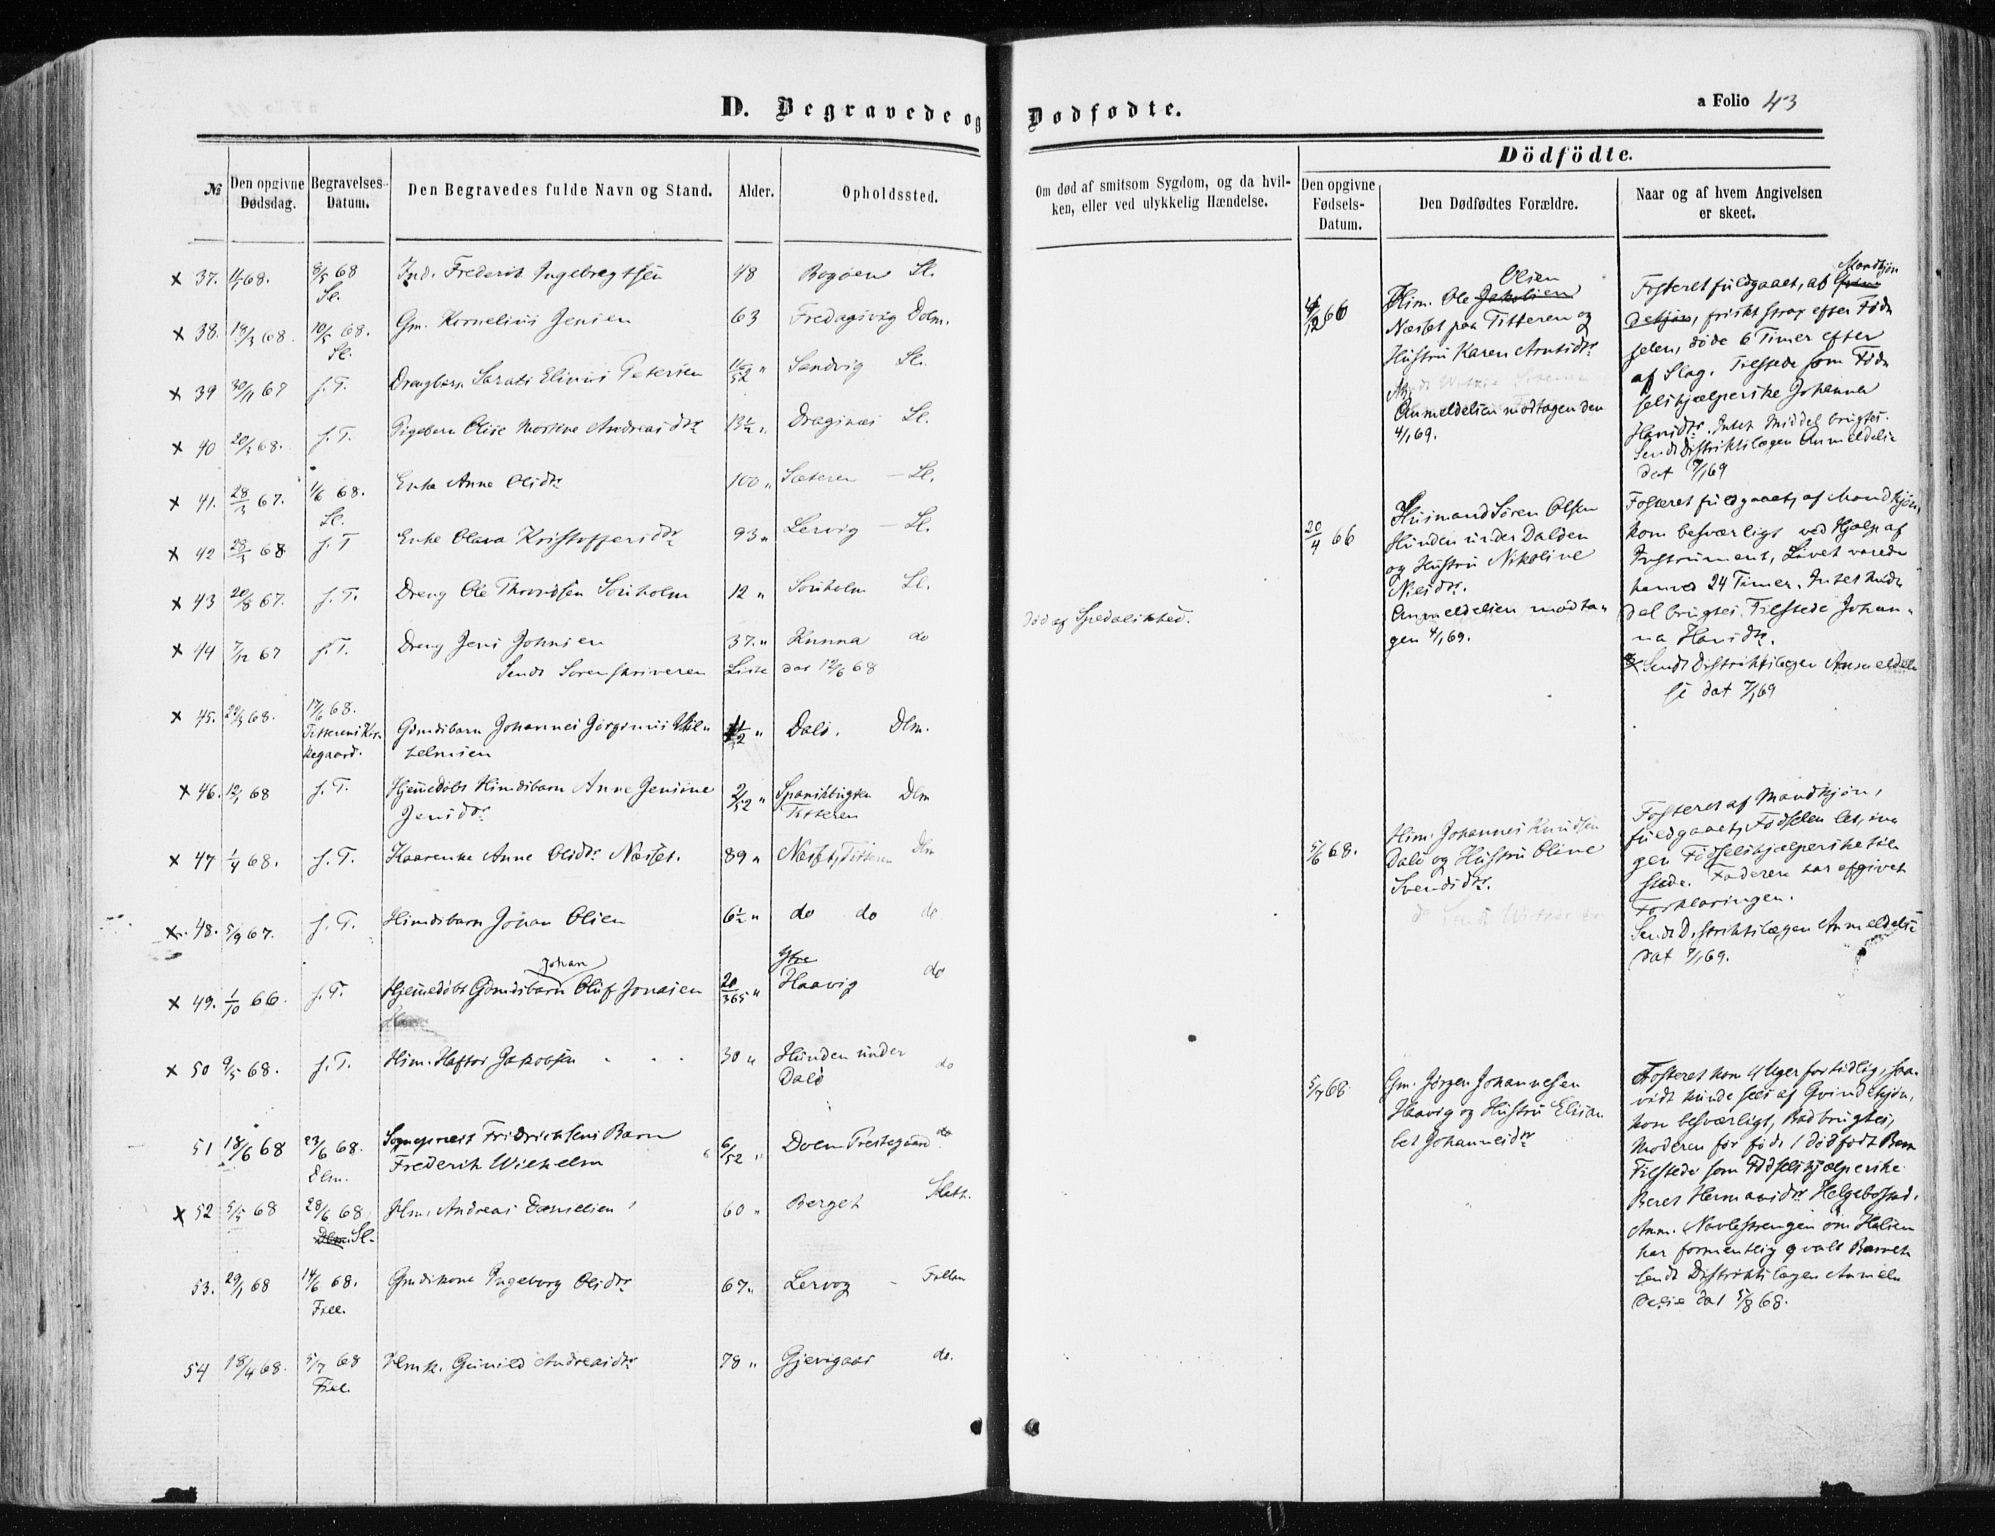 D. Begravede og Dødfødte.
a Folio 43
№
Den opgivne Dødsdag.
Begravelses-Datum.
Den Begravedes fulde Navn og Stand.
Alder.
Opholdssted.
Om død af smitsom Sygdom, og da hvil-
ken, eller ved ulykkelig Hændelse.
Dödfödte.
Den opgivne Fødsels-Datum.
Den Dødfødtes Forældre.
Naar og af hvem Angivelsen er skeet.
× 37. 68. 8/5 68 Sl. Ind. Frederik Ingebregtsen 48 Bogøen Sl.
× 38. 18/3 68. 10/5 68. Sl. Gm. Kornelius Jensen 63 Fredagsvig Dolm.
× 39 30/11 67 s. T. Drengbarn Elinus Petersen 16/52 " Sandvig Sl.
× 40 20/3 68. s. T. Pigebarn Olise Andreasdtr 13½ " Dragsnæs Sl.
× 41. 28/3 67. 1/6 68. Sl. Enke Anne Olsdtr 100 " Sæteren – Sl.
× 42 28/3 68 s. T Enke Olava Kristoffersdtr 93 " Lervig – Sl.
× 43 20/8 67. s. T. Dreng Ole Thorvdsen Sørsholm 12 " Sørsholm Sl.
× 44 7/12 67 s. T. Dreng Jens Johnsen 37. " Kunna do død af Spedalskhed.
Sendt Sorenskriveren Liste dat 12/6 68
× 45. 29/3 68. 17/6 68. Titterens Kir-
kegaard. Gdmdsbarn Johannes Jørginus Vil-
helmsen 1½ " Dalø. Dlm.
× 46. 12/1 68 s. T. Hjemmedøbt Hsmdsbarn Anne Jensine
Jensdtr 2/52 " Spanskbugten Titteren Dlm
× 47 1/4 68. s. T. Kaarenke Anne Olsdtr Næsset. 89 " Næsset, Titteren Dlm
× 48. 5/9 67. s. T. Hsmdsbarn Johan Olsen 6½ " do do do
× 49. 1/10 66. s. T. Hjemmedøbt Gdmdsbarn Johan Oluf Jonasen 20/365 " Ytre Haavig do
× 50 9/5 68. s. T. Hsm. Haftor Jakobsen 30 " Hunden under Dalø do
51 18/6 68 23/6 68. Dlm. Sognepræst Fridrichsens Barn
Frederik Wilhelm 6/52 " Dolm Prestegaard do
× 52 5/5 68 28/6 68. Dlm. Sl. Hsm. Andreas Danielsen 60 " Berget Slett.
53. 29/1 68 14/6 68. Fill. Gmdskone Ingeborg Olsdtr 67. " Lervog – Fillan
54 18/4 68. 5/7 68 Fill. Hsmk. Gunild Andreasdtr 78 " Gjevigaas do.
4/12 66
Hsm. Ole Jakobsen Olsen
Næsset paa Titteren og
Hustru Karen Arntsdtr
Anmeldelsen modtagen den
4/1 69.
Fosteret fuldgaaet, af Kvin-
dekjøn Mandkjøn, friskt strax efter Fød-
selen, døde 6 Timer efter
af Slag. Tilstede som Fød-
selshjælperske Johanna
Hansdtr. Intet Middel brugtes.
Sendt Distriktslægen Anmeldelse
dat 7/1 69
20/4 66
Husmand Søren Olsen
Hunden under Daløen
og Hustru Nikoline
Nilsdtr.
Anmeldelsen modta-
gen 4/1 69.
Fosteret fuldgaaet, af Mandkjøn,
kom besværligt ved Hjælp af
Instrument, Livet varede
henved 24 Timer. Intet Mid-
del brugtes. Tilstede Johan-
na Hansdtr.
Sendt Distriktslægen Anmeldel-
se dat 7/1 69
5/6 68.
Hsm. Johannes Knudsen
Dalø og Hustru Oline
Svendsdtr.
Fosteret af Mandkjøn,
fuldgaaet, Fødselen let, in-
gen Fødselshjælperske til-
stede. Faderen har afgivet
Forklaringen.
Sendt Distriktslægen Anmeldelse
dat 7/1 69.
5/7 68
Gm. Jørgen Johannesen
Haavig og Hustru Elisa-
bet Johannesdtr
Fosteret kom 4 Uger for tidlig, saa-
vidt kunde sees af Qvindekjøn,
kom besværligt, Bad brugtes,
Moderen før født 1 dødfødt Barn
Tilstede som Fødselshjælperske
Beret Hermansdtr Helgebostad.
Anm. Navlestrengen om Halsen
har formentlig qvalt Barnet
Sendt Distriktslægen Anmel-
delse dat 5/8 68.